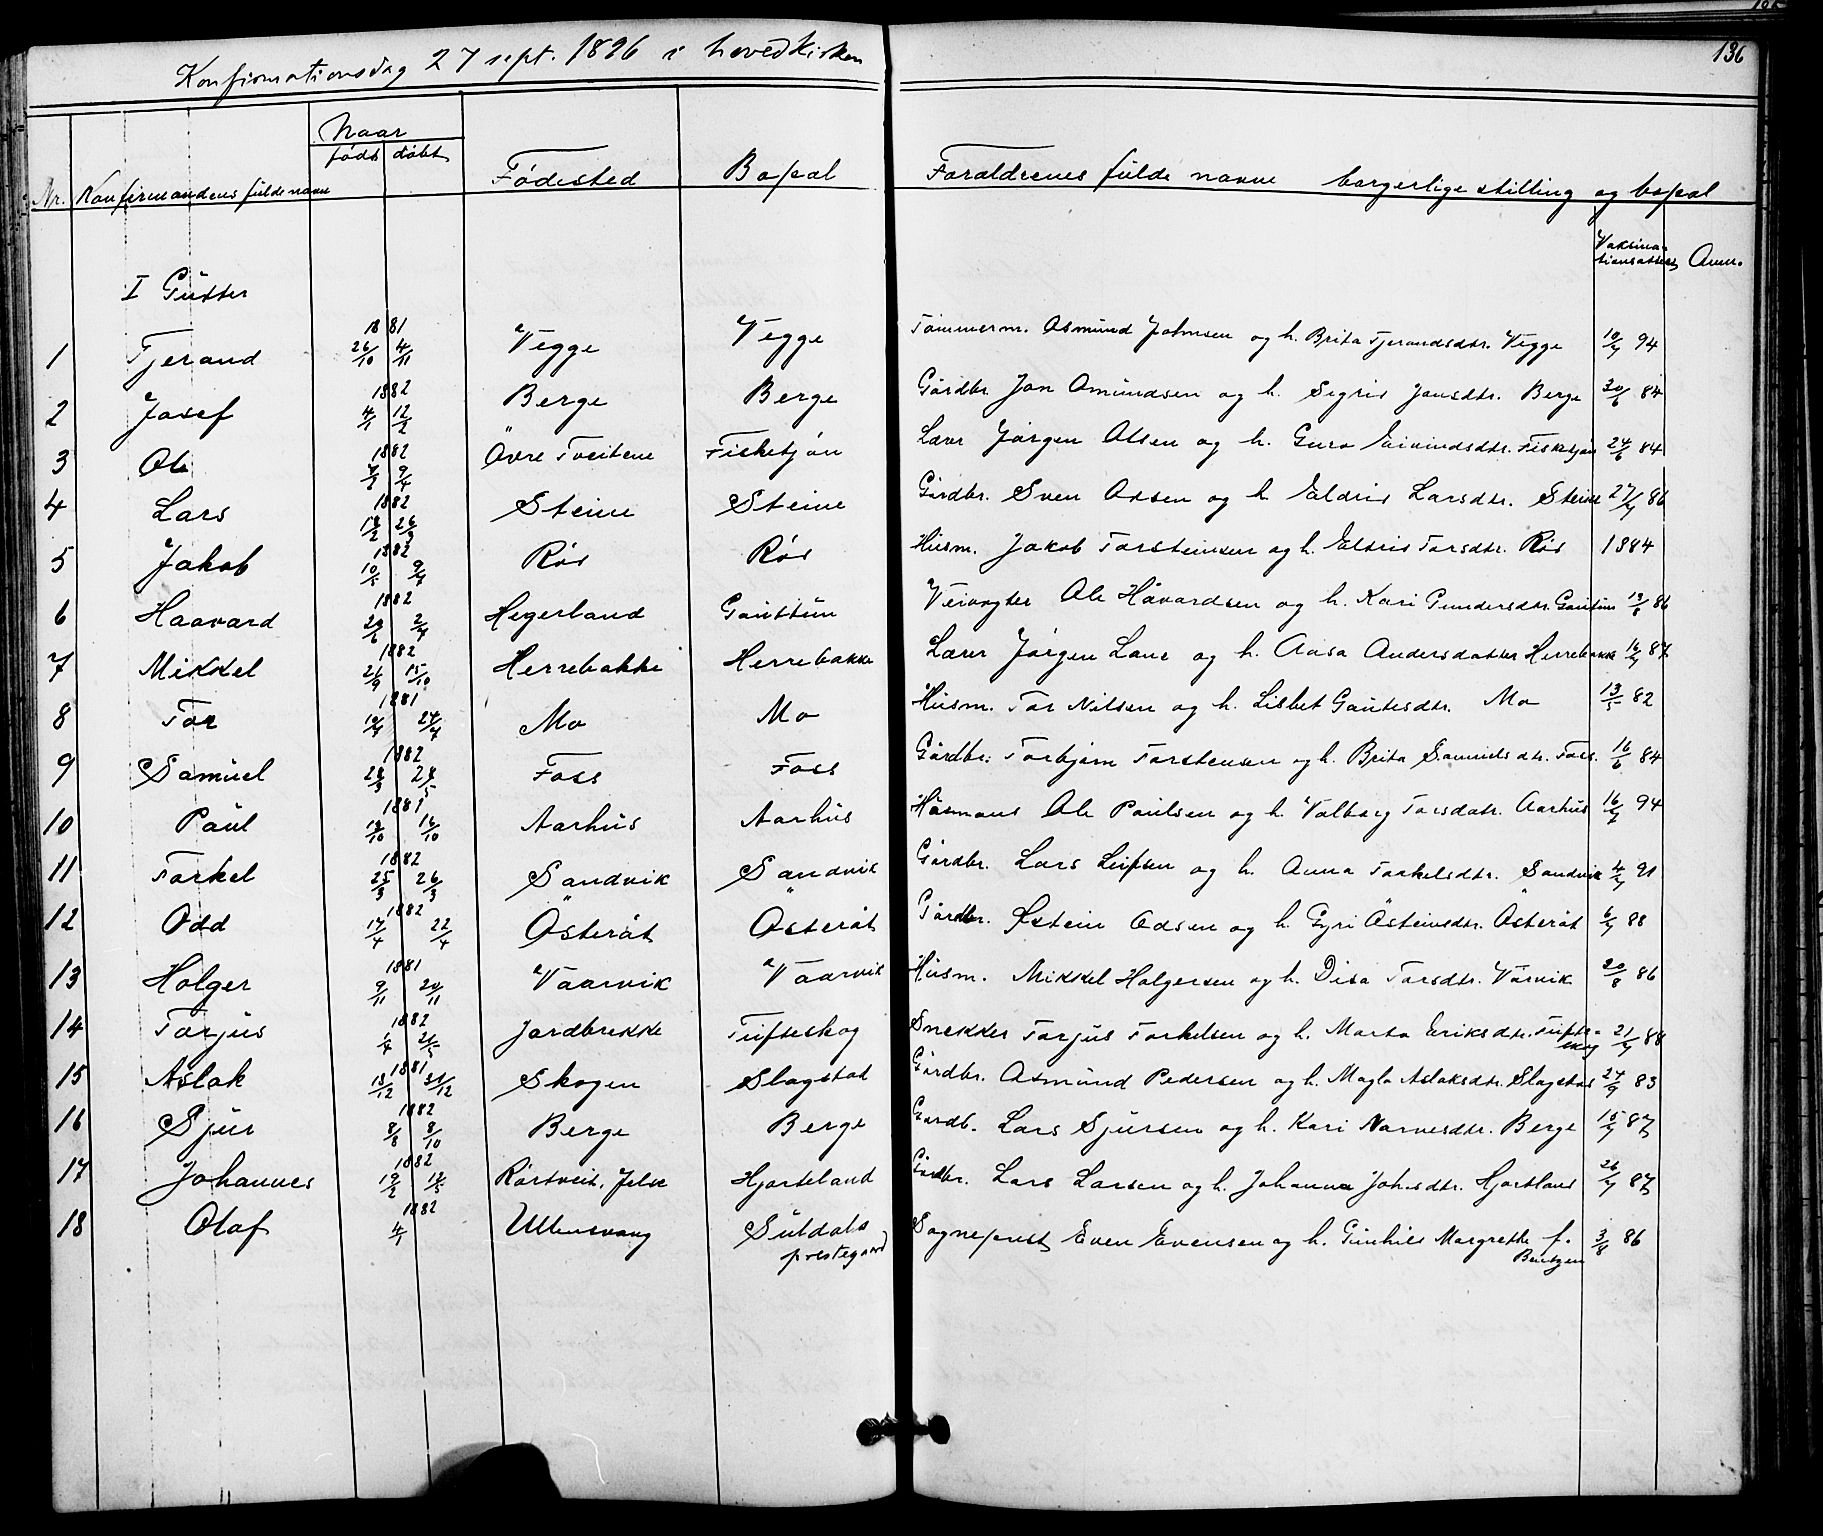 Konfirmationsdag 27 sept. 1896 i hovedkirken
136
Nr. Konfirmandens fulde navn Naar født døbt Fødested Bopæl Forældrenes fulde navne borgerlige stilling og bopæl
Vaksinationsattest Anm.
I Gutter
1 Tjerand 1881 26/10 4/11 Vegge Vegge Tømmerm. Asmund Johnsen og h. Brita Tjerandsdtr. Vegge 10/7 94
2 Josef 1882 4/1 12/2 Berge Berge Gårdbr. Jon Amundsen og h. Segrid Jonsdtr. Berge 30/6 84
3 Ole 1882 9/4 Övre Tveitene Fisketjøn Lærer Jørgen Olsen og h. Guro Eivindsdtr. Fisketjøn 24/6 84
4 Lars 1882 18/2 26/3 Steine Steine Gårdbr. Sven Odsen og h. Eldrid Larsdtr. Steine 27/7 86
5 Jakob 1882 9/4 Röd Röd Husm. Jakob Torsteinsen og h. Eldrid Torsdtr. Röd 1884
6 Haavard 1882 2/7 Hegerland Gauttun Veivogter Ole Håvardsen og h. Kari Gundersdtr. Gautun 86
7 Mikkel 1882 26/9 15/10 Herrebakke Herrebakke Lærer Jørgen Lane og h. Aasa Andersdatter Herrebakk 16/7 87
8 Tor 1881 24/7 Mo Mo Husm. Tor Nilsen og h. Lisbet Gautesdtr. Mo 13/5 82
9 Samuel 1882 28/3 Foss Foss Gårdbr. Torbjørn Torstensen og h. Brita Samuelsdtr. Foss. 16/6 84
10 Paul 1881 16/10 Aarhus Aarhus Husmand Ole Paulsen og h. Valborg Torsdatr. Aarhus 16/7 94
11 Torkel 1882 25/3 26/3 Sandvik Sandvik Gårdbr. Lars Leifsen og h. Anna Torkelsdtr. Sandvik 4/7 91
12 Odd 1882 17/4 22/4 Österåt Österåt Gårdbr. Østein Odsen og h. Gyri Östeinsdtr. Österåt 6/7 88
13 Holger 1881 9/11 20/11 Vaarvik Vaarvik Husm. Mikkel Holgersen og h. Disa Torsdtr. Vårvik 20/8 86
14 Torjus 1882 Jordbrekke Tufteskog Snekker Torjus Torkelsen og h. Marta Eriksdtr. Tufteskog 21/7 88
15 Aslak 1881 18/12 31/12 Skogen Slagstad Gårdbr. Asmund Pedersen og h. Magla Aslaksdtr. Slagstad 24/9 83
16 Sjur 1882 8/8 8/10 Berge Berge Gardb. Lars Sjursen og h. Kari Narvesdtr. Berge 15/7 87
17 Johannes 1882 19/2 Rörtveit, Jelse Hjorteland Gårdbr. Lars Larsen og h. Johanna Johsdtr. Hjorteland 26/7 87
18 Olaf 1882 4/1 Ullensvang Suldals prestegaard Sogneprest Even Evensen og h. Gunhild Margrethe f. Bentzen 3/8 86